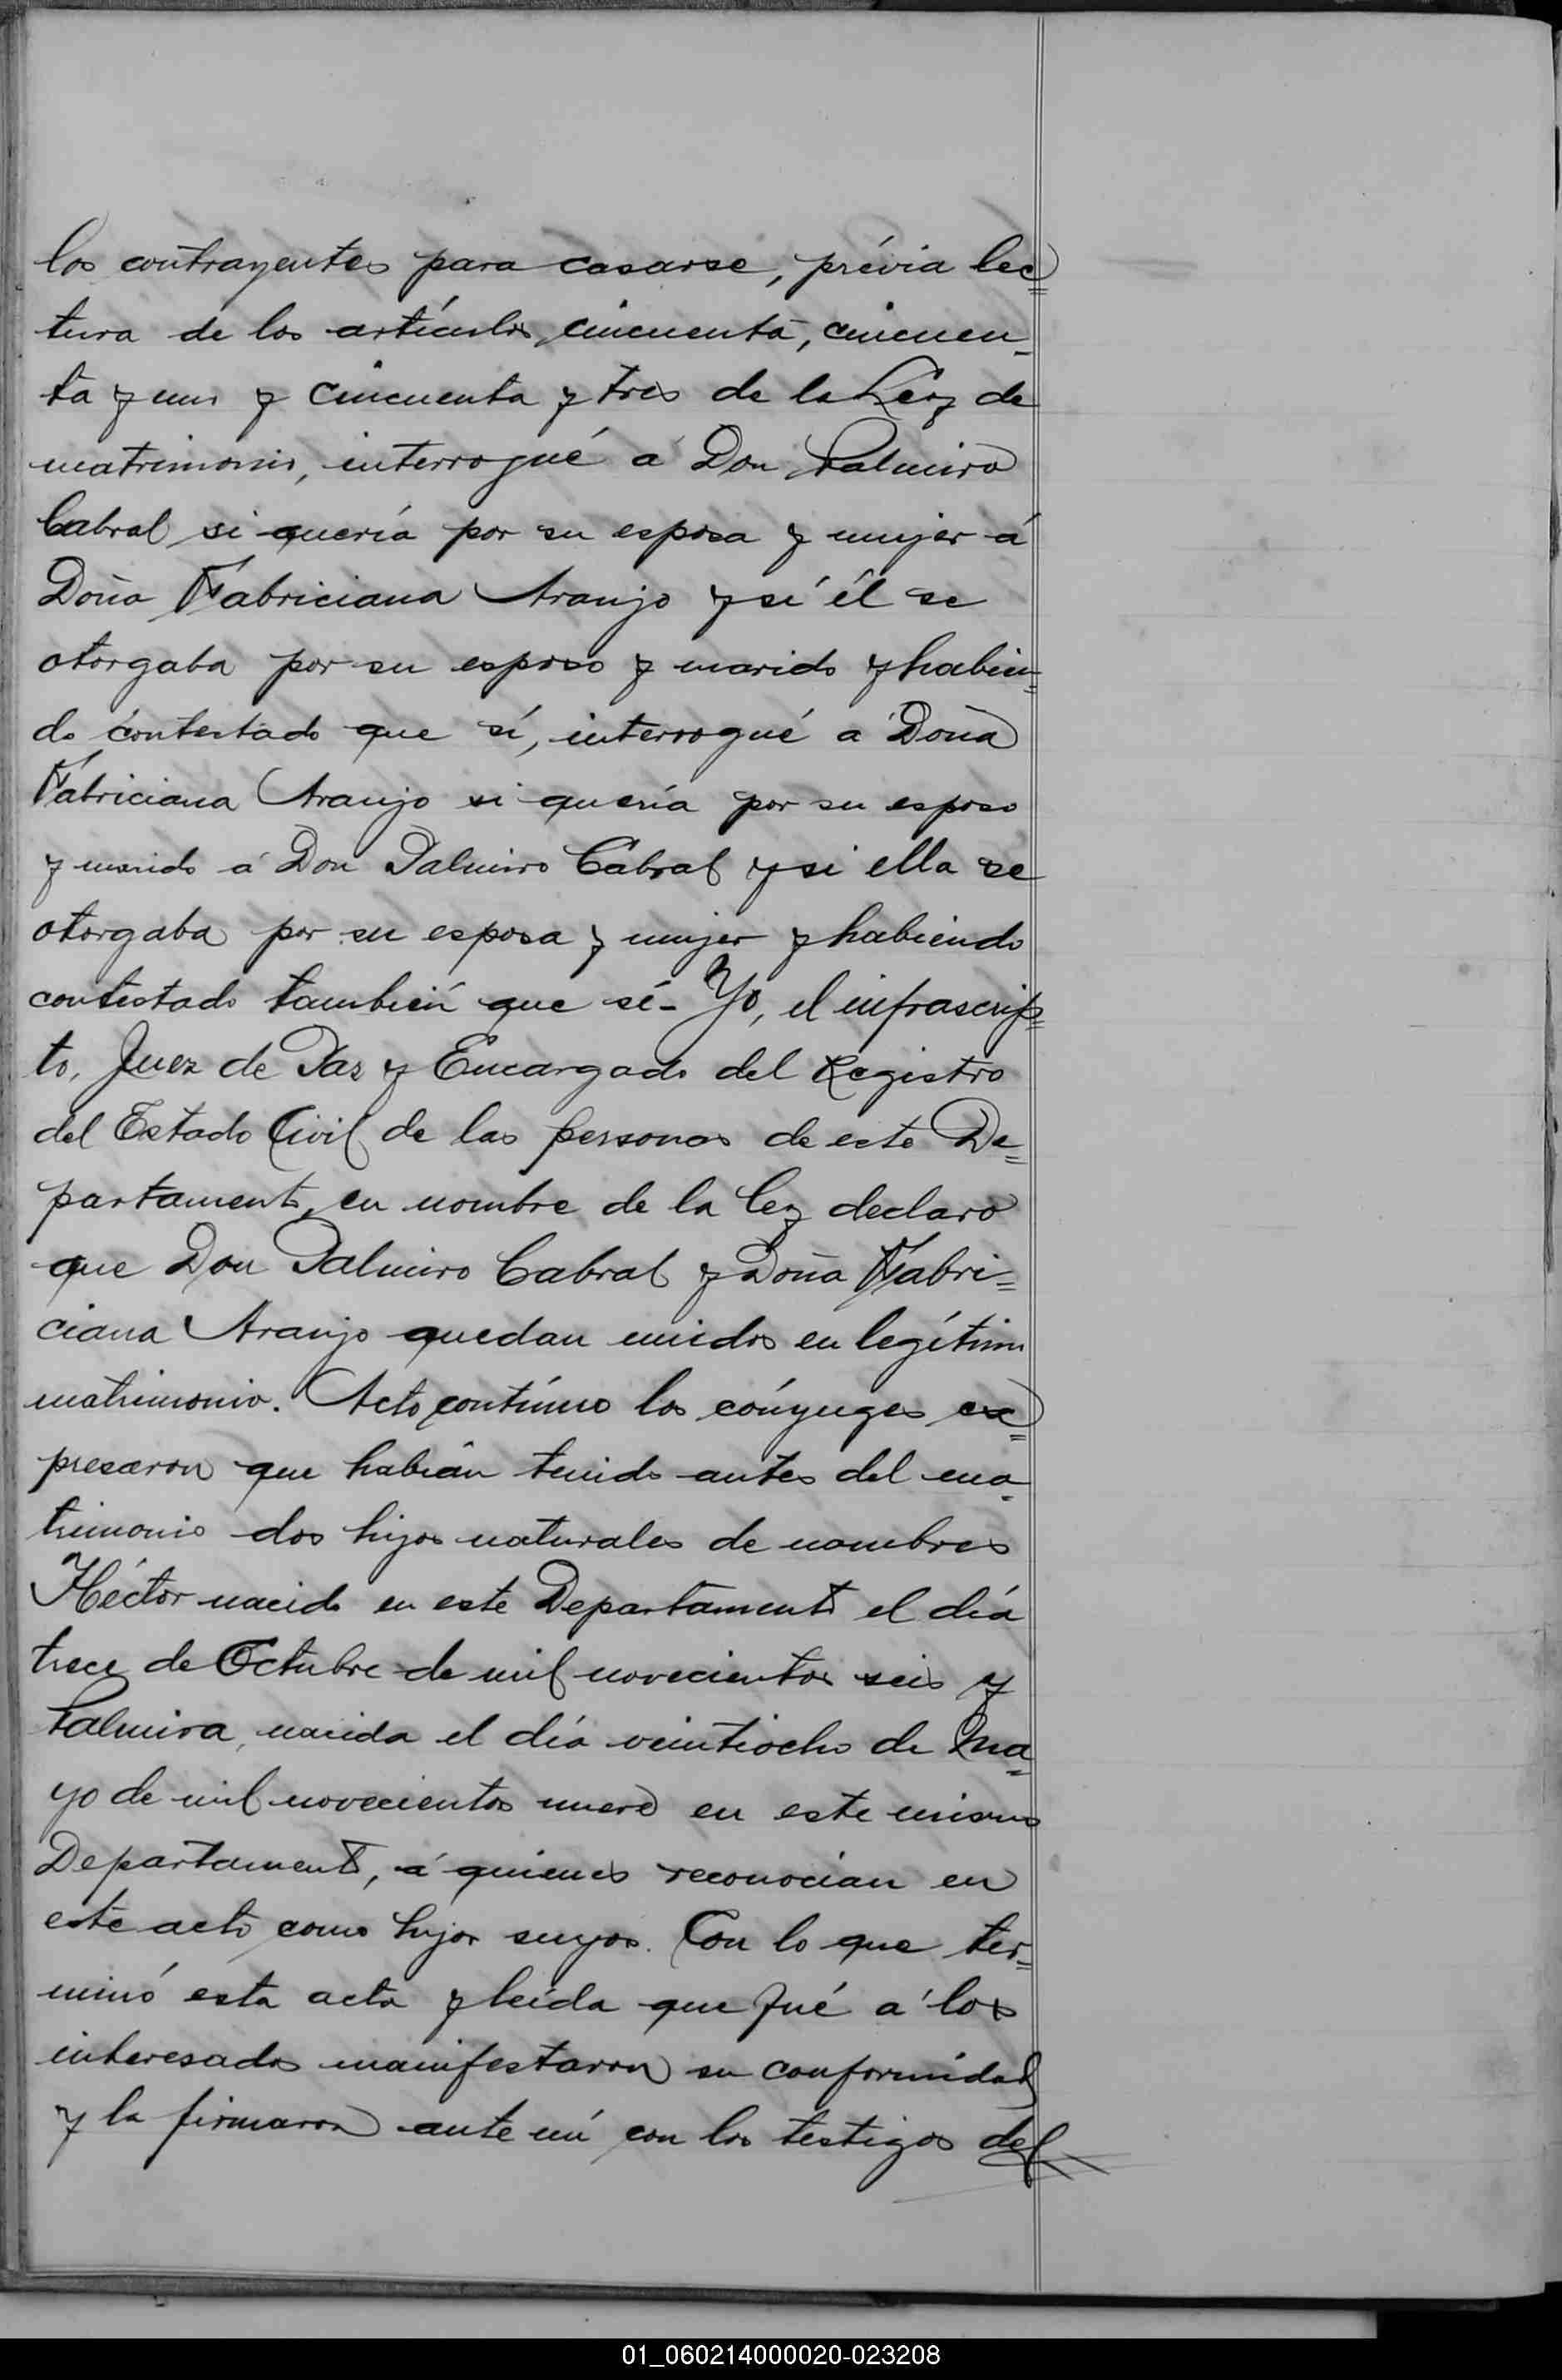 los contrayentes para casarse, prévia lec=
tura de los artículos cincuenta, cincuen-
ta y uno y cincuenta y tres de la Ley de
matrimonio, interrogué á Don Palmiro
Cabral si quería por su esposa y mujer á
Doña Fabriciana Araujo y si él se
otorgaba por su esposo y marido y habien=
do contestado que sí, interrogué a Doña
Fabriciana Araujo si quería por su esposo
y marido á Don Palmiro Cabral y si ella se
otorgaba por su esposa y mujer y habiendo
contestado también que sí- Yo, el infrascrip=
to, Juez de Paz y Encargado del Registro
del Estado Civil de las personas de este De=
partamento, en nombre de la ley declaro
que Don Palmiro Cabral y Doña Fabri=
ciana Araujo quedan unidos en legítimo
matrimonio. Acto contínuo los cónyuges ex=
presaron que habían tenido antes del ma-
trimonio dos hijos naturales de nombres
Héctor nacido en este Departamento el día
trece de Octubre de mil novecientos seis y
Palmira, nacida el día veintiocho de Ma=
yo de mil novecientos nueve en este mismo
Departamento, á quienes reconocían en
este acto como hijos suyos. Con lo que ter=
minó esta acta y leída que fué á los
interesados manifestaron su conformidad
y la firmaron ante mí con los testigos del
01_060214000020-023208